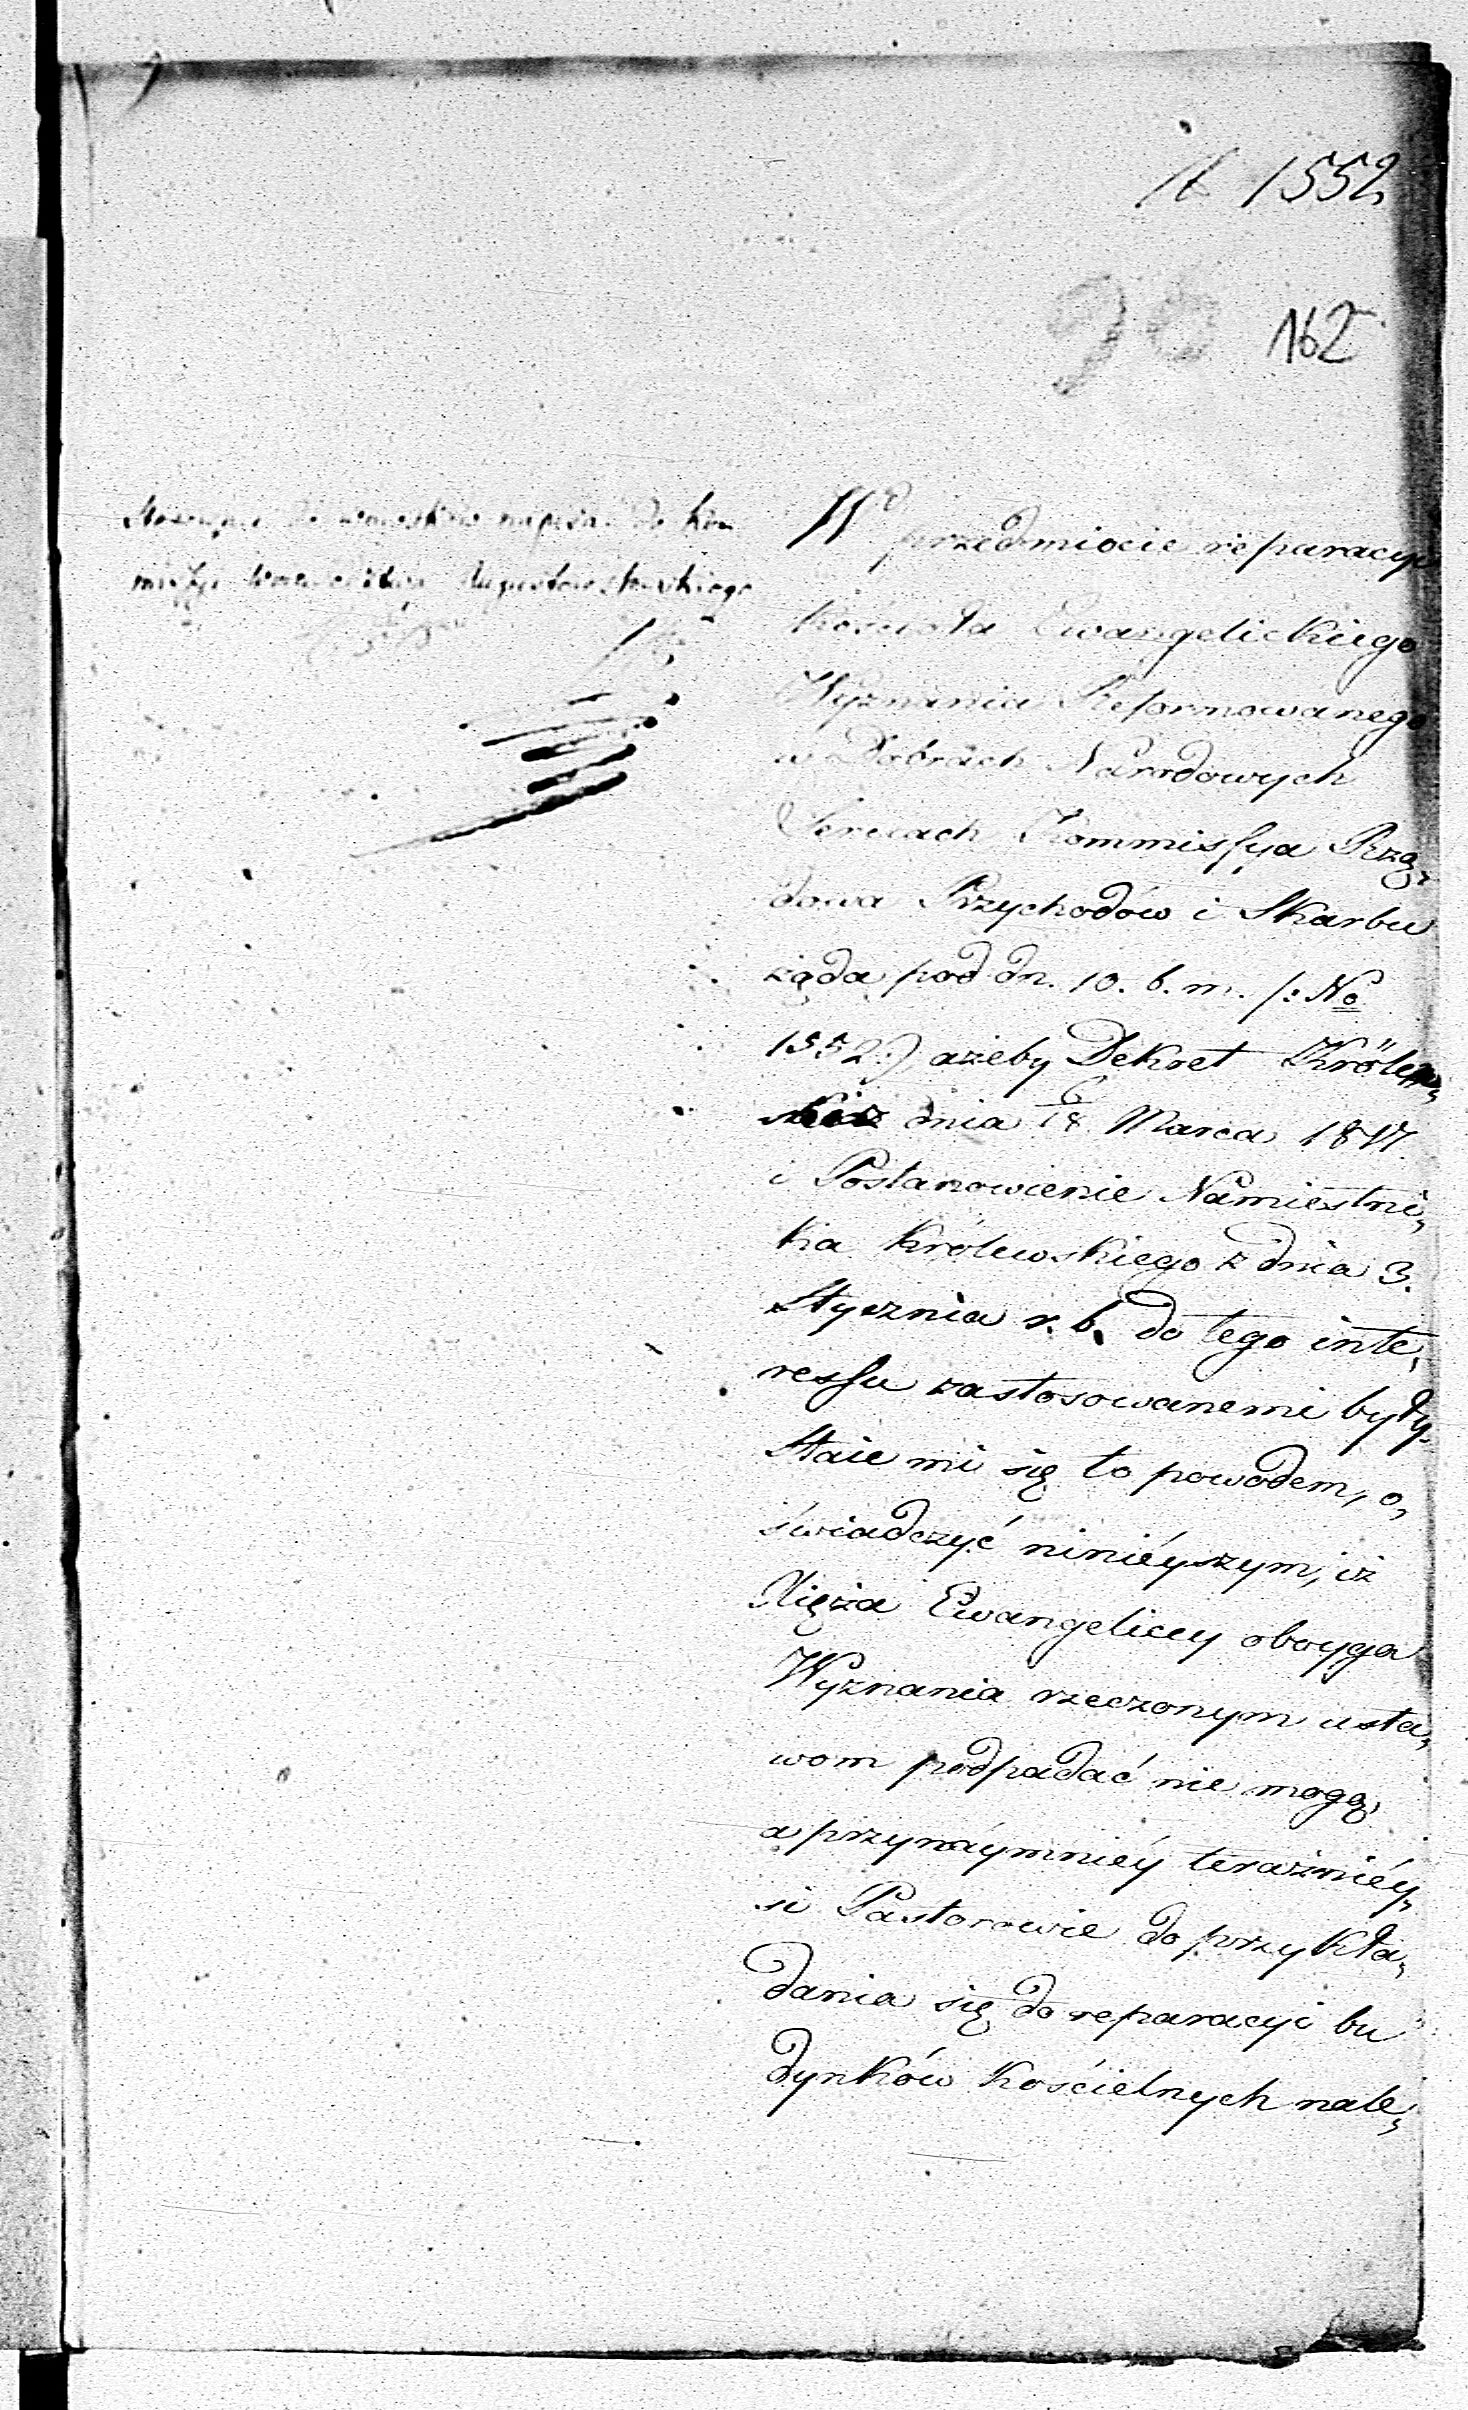 № 1552
162
Stosownie do wniosków napisać do Kom
missyi Woiewództwa Augustowskiego
W przedmiocie reparacyi
Kościoła Ewangelickiego
Wyznania Reformowanego
w Dobrach Narodowych
Sereiach Kommissya Rzą„
dowa Przychodów i Skarbu
żąda pod dn. 10. b. m. /: No
1552:) ażeby Dekret Królew„
ski z dnia 6/18 Marca 1817.
i Postanowienie Namiestni„
ka Królewskiego z dnia 3.
Stycznia r. b. do tego inte„
ressu zastosowanemi były.
Staie mi się to powodem, o„
świadczyć niniéyszym, iż
Xięża Ewangeliccy oboyga
Wyznania rzeczonym usta„
wom podpadać nie mogą,
a przynáymniéy teraźniéy„
si Pastorowie do przykła„
dania się do reparacyi bu
dynków kościelnych nale„